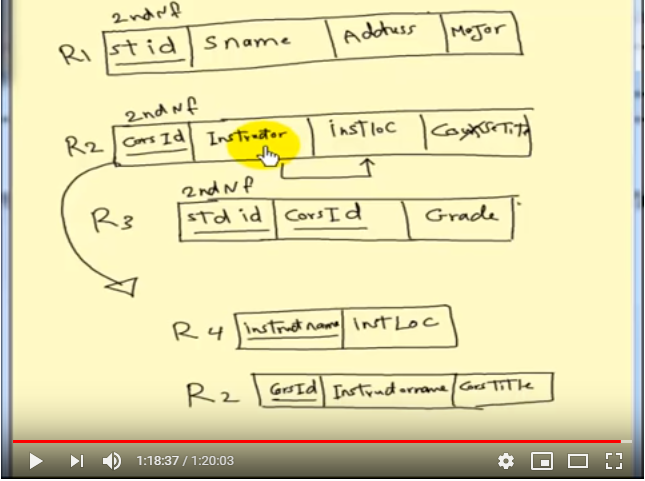 2ndNf
R1 stid Sname Address Major
2ndNf
R2 CorsId Instructor instloc CourseTitl
2ndNf
R3 stdid CorsId Grade
R4 instructname InstLoc
R2 CorsId Instructorname CorsTitle
1:18:37 / 1:20:03